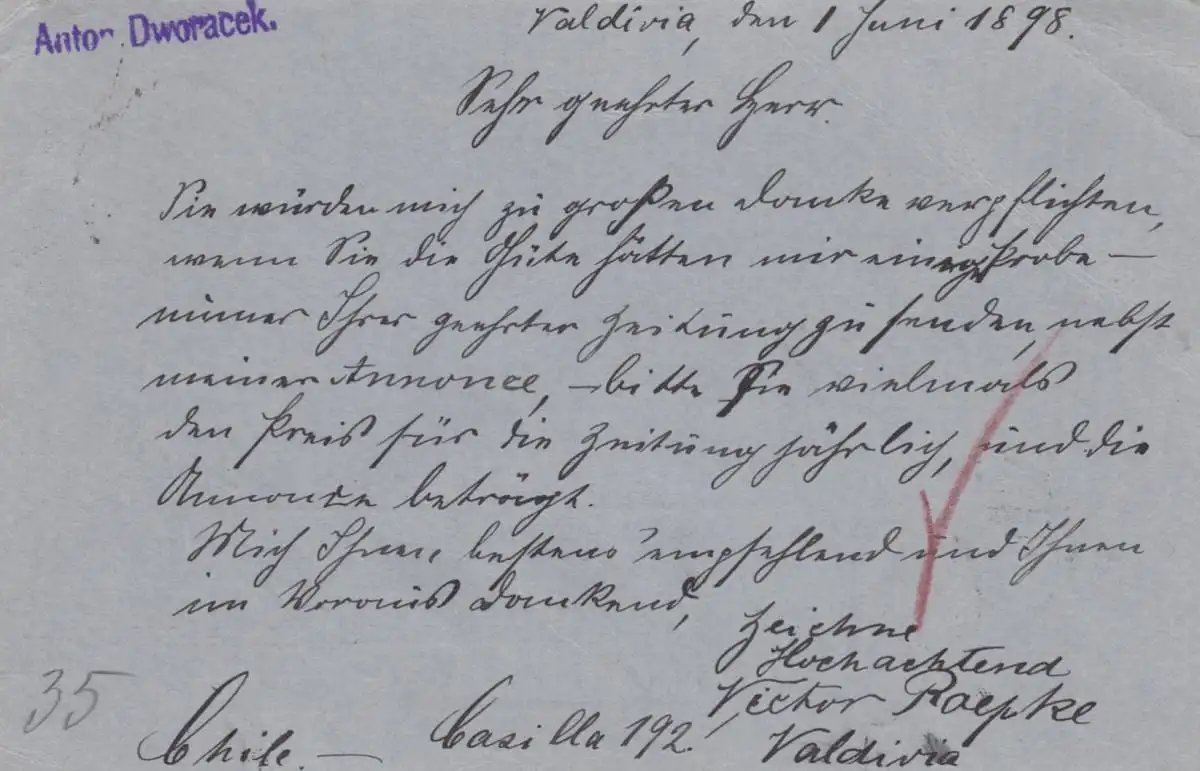 Anton Dworacek.
Valdivia, den 1 Juni 1898.
Sehr geehrter Herr.
Sie würden mich zu großen Danke verpflichten,
wenn Sie die Güte hätten mir eine Probe-
numer Ihrer geehrter Zeitung zu senden, nebst
meiner Annonce, – bitte Sie vielmals
den Preis für die Zeitung jährlich, und die
Annonce beträgt.
Mich Ihnen, bestens empfehlend und Ihnen
im Voraus dankend,
zeichne
Hochachtend
Victor Raepke
Valdivia
Casilla 192.
Chile. –
35